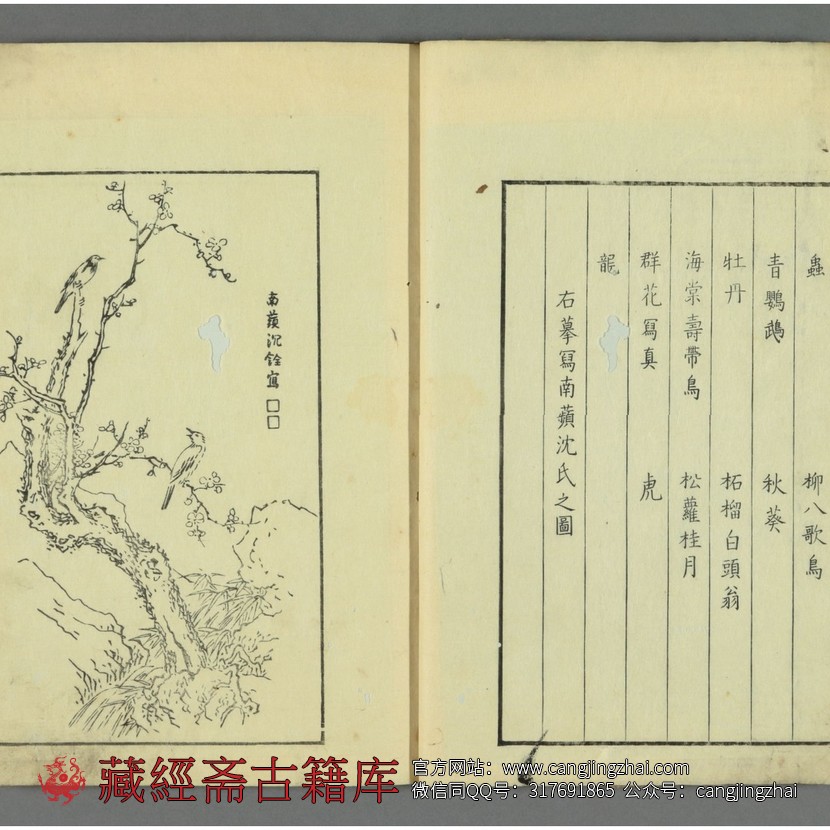 蟲　柳八歌鳥
青鸚鵡　秋葵
牡丹　柘榴白頭翁
海棠壽帶鳥　松蘿桂月
群花寫真　虎
龍
右摹寫南蘋沈氏之圖
南蘋沈銓寫
藏經斋古籍库
官方网站：www.cangjingzhai.com
微信同QQ号：317691865 公众号：cangjingzhai